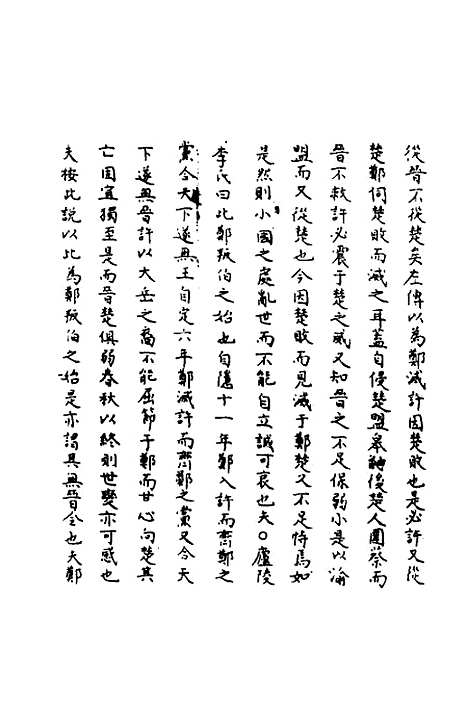 從晉不從楚矣左傳以為鄭滅許因楚敗也是必許又從
楚鄭伺楚敗而滅之耳蓋自侵楚盟皋鼬後楚人圍蔡而
晉不救許必震于楚之威又知晉之不足保弱小是以渝
盟而又從楚也今因楚敗而見滅于鄭楚又不足恃焉如
是然則小國之處亂世而不能自立誠可哀也夫○廬陵
李氏曰此鄭叛伯之始也自隱十一年鄭入許而齊鄭之
黨合天下遂無王自定六年鄭滅許而齊鄭之黨又合天
下遂無晉許以大岳之裔不能屈節于鄭而甘心向楚其
亡固宜獨至是而晉楚俱弱春秋以終則世變亦可感也
夫按此說以此為鄭叛伯之始是亦謂其無晉全也夫鄭